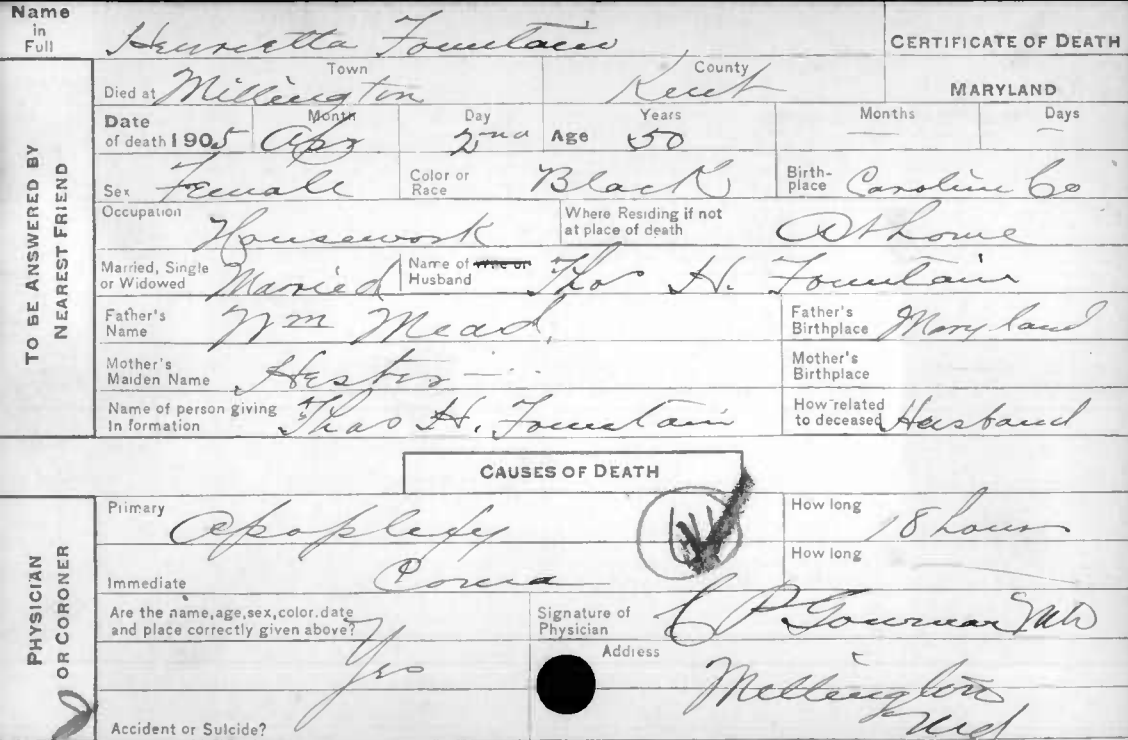 Name in Full Henrietta Fountain CERTIFICATE OF DEATH
TO BE ANSWERED BY NEAREST FRIEND
Died at Millington Town Kent County MARYLAND
Date of death 1905 Month Apr Day 2nd Age Years 50 Months — Days —
Sex Female Color or Race Black Birth-place Caroline Co
Occupation Housework Where Residing if not at place of death At home
Married, Single or Widowed Married Name of Wife or Husband Thos H. Fountain
Father's Name Wm Mead, Father's Birthplace Maryland
Mother's Maiden Name Hester — Mother's Birthplace
Name of person giving In formation Thos H. Fountain How related to deceased Husband
CAUSES OF DEATH
PHYSICIAN OR CORONER
Primary Apoplexy How long 18 hours
Immediate Coma How long
Are the name, age, sex, color, date and place correctly given above? Yes Signature of Physician C P
Address Millington Md
Accident or Suicide?